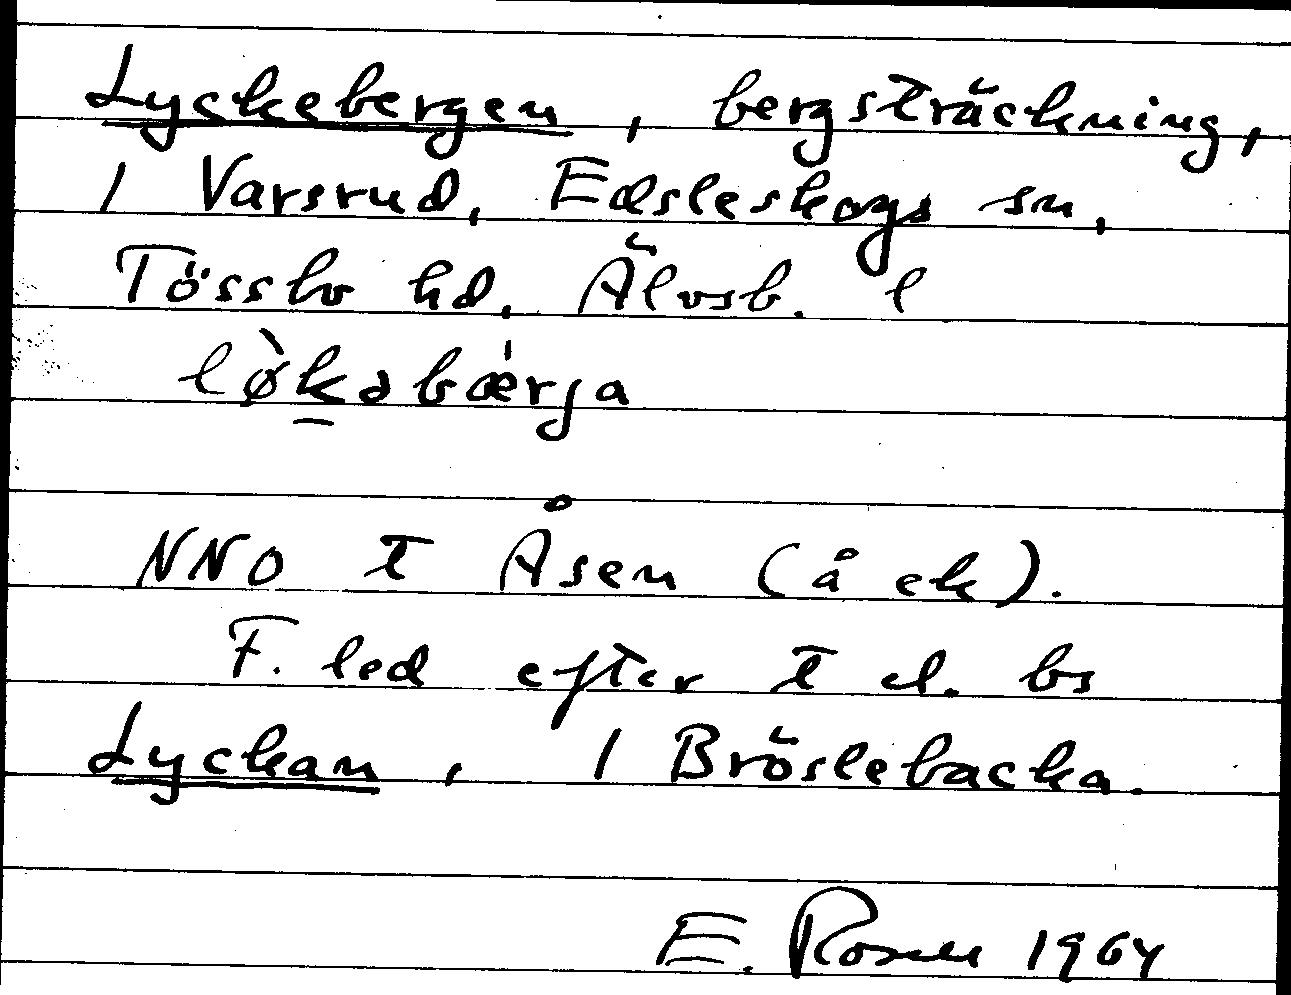 Lyckebergen, bergsträckning,
1 Varsrud, Edsleskogs sn,
Tössbo hd, Älvsb. l
lø̀kəbǽrja
NNO t Åsen (å ek).
F. led efter t el. bs
Lyckan, 1 Bröslebacka.
E. Rosell 1964